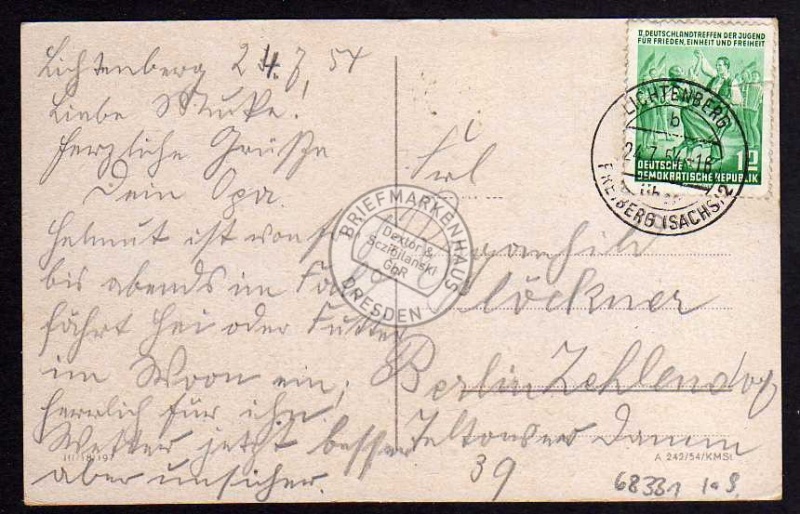 Lichtenberg 24.7.54
Liebe
Herzliche Grüße
Dein Opa.
Helmut ist von
bis abends im
fährt Hei oder Futter
im ein,
herrlich für ihn,
Wetter jetzt besser
aber unsicher.
III/18/197
II. DEUTSCHLANDTREFFEN DER JUGEND
FÜR FRIEDEN, EINHEIT UND FREIHEIT
DEUTSCHE
DEMOKRATISCHE REPUBLIK
LICHTENBERG
b
24.7.54-16
über
FREIBERG (SACHS) 2
BRIEFMARKENHAUS
Dextor &
Sczibilanski
GbR
DRESDEN
Frl
Klöckner
Berlin Zehlendorf
Teltower Damm
39
A 242/54/KMSt.
68331